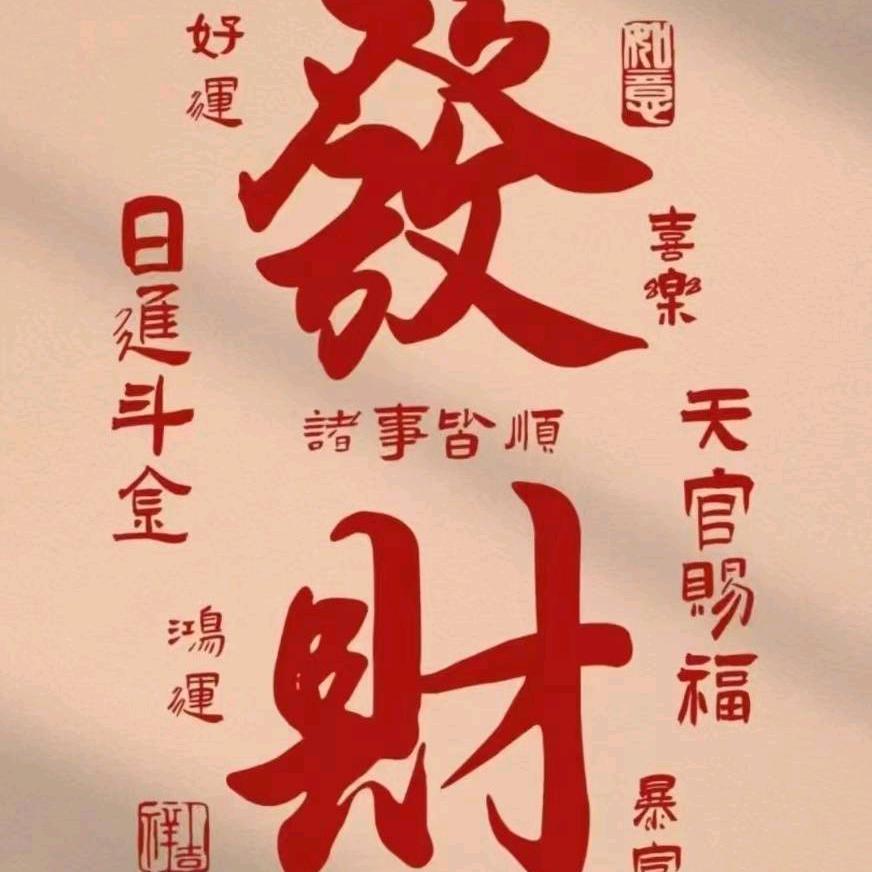 好運
如意
發
喜樂
日進斗金
諸事皆順
天官賜福
財
鴻運
暴富
吉祥